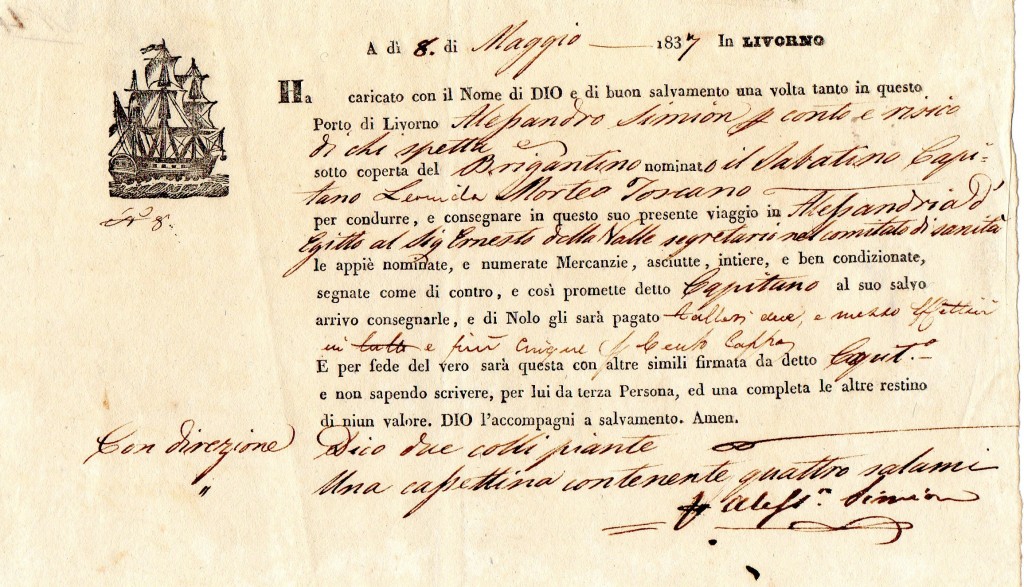 A dì 8. di Maggio 1837 In LIVORNO
Ha caricato con il Nome di DIO e di buon salvamento una volta tanto in questo
Porto di Livorno Alessandro Simion p conto e risico
di chi spetta
sotto coperta del Brigantino nominato il Sabatino Capi-
tano Leonida Morteo Toscano
per condurre, e consegnare in questo suo presente viaggio in Alessandria d'
Egitto al Sig Ernesto della Valle segretario nel comitato di sanità
le appiè nominate, e numerate Mercanzie, asciutte, intiere, e ben condizionate,
segnate come di contro, e così promette detto Capitano al suo salvo
arrivo consegnarle, e di Nolo gli sarà pagato talleri due, e mezzo effettivi
in tutto e più cinque p Cento Cappa
E per fede del vero sarà questa con altre simili firmata da detto Capit.o
e non sapendo scrivere, per lui da terza Persona, ed una completa le altre restino
di niun valore. DIO l'accompagni a salvamento. Amen.
Con direzione Dico due colli piante
" Una cassettina contenente quattro salami
Aless.o Simion